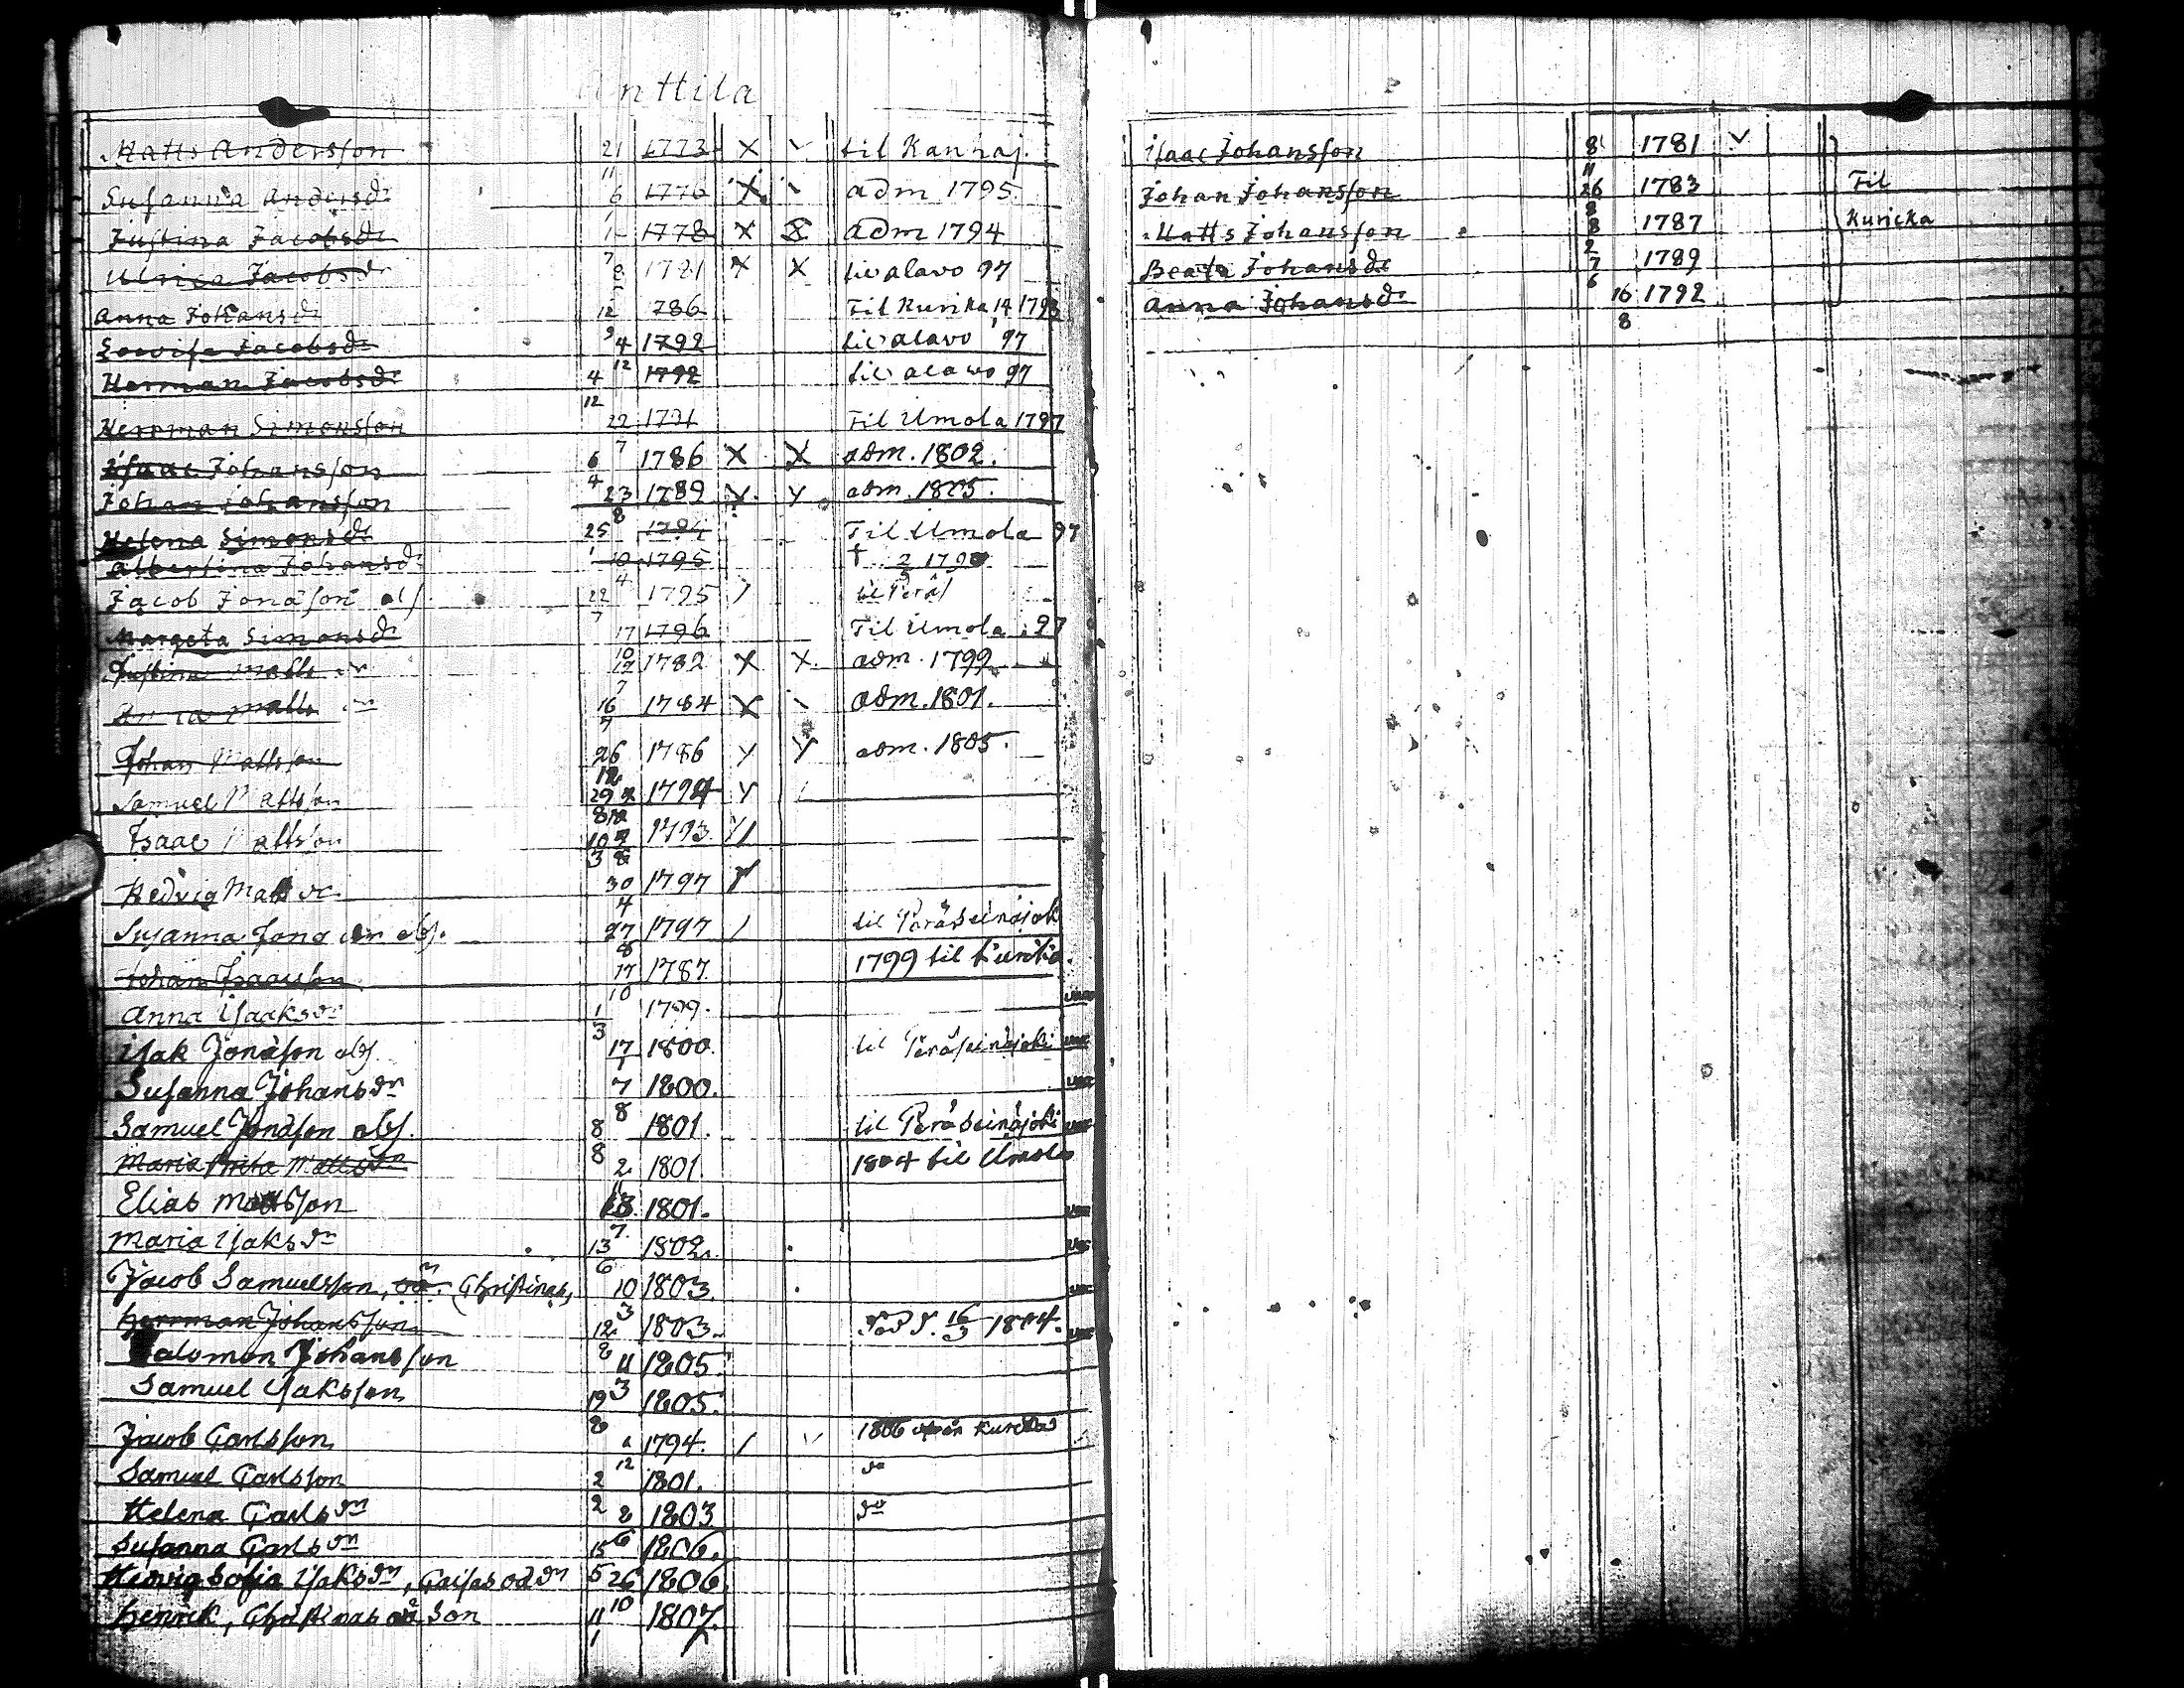 Anttila
Matts Andersson 21/11 1773 X til Kauhaj.
Susanna Andersdr 6 1776 X adm 1795.
Justina Jacobsdr 1/7 1778 X X adm 1794
Ulrica Jacobsdr 8 1781 X X til alavo 97
Anna Johansdr 12/9 786 Til Kurika 14
Lovisa Jacobsdr 4/12 1792 til alavo 97
Herman Jacobsdr 4/12 1792 til alavo 97
Herrman Simonsson 22/7 1791 Til Ilmola 1797
Isaac Johansson 6/4 1786 X X adm. 1802.
Johan Johansson 23/8 1789 X Y adm. 1805.
Helena Simonsdr 25/1 1794 Til Ilmola 97
Albertina Johansdr 10/4 1795 †
Jacob Jonasson 22/7 1795 / til Peräs
Margeta Simonsdr 17/10 1796 Til Ilmola 97
Justina Matts dr 1782 X X. adm. 1799
Matts dr 16/7 1784 X adm. 1801.
Johan Mattsson 26/12 1786 Y Y adm. 1805.
Samuel Mattsson 29/8 Y
Isaac Mattsson 10/3 1793.
Hedvig Mats dr 30/4 1797
Susanna Jona dr 27/8 1797 / til Peräseinäjok
Johan Isaacsson 17/10 1787 1799 til Kurika.
Anna Isaaksdr 1/3 1799.
Isak Jonasson 17/1 1800. til Peräseinäjoki
Susanna Johansdn 7/8 1800.
Samuel Jonasson 8/8 1801. til Peräseinäjoki
Maria Brita Mattsdn 2/11 1801. 1804 til Ilmola
Elias Mattsson 1801.
Maria Isaksdn 13/6 1802.
Jacob Samuelsson, Christinas, 10/3 1803.
Herrman Johansson 12/8 1803. Död d. 16/3 1804.
Salomon Johansson 11/3 1805.
Samuel Isaksson 19/8 1805.
Jacob Carlsson 1794. / 1806 ifrån Kurika
Samuel Carlsson 2/2 1801. do
Helena Carlsdn 2/6 1803 do
Susanna Carlsdn 15/5 1806.
Hedvig Sofia Isaksdn, Caisas oä dn 26/10 1806
Henrik, Christinas oä Son 11/1 1807.
Isaac Johansson 8/11 1781
Johan Johansson 26/8 1783 Til
Matts Johansson 8/2 1787 Kuricka
Beata Johansdr 7/6 1789
Anna Johansdr 16/8 1792